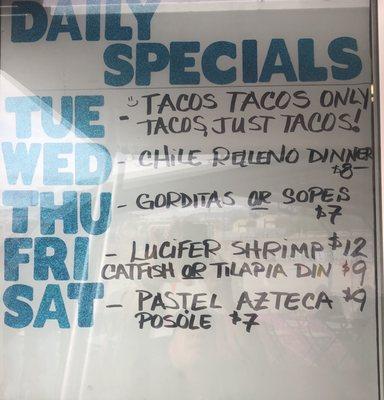 DAILY
SPECIALS
TUE - TACOS TACOS ONLY
TACOS, JUST TACOS!
WED - CHILE RELLENO DINNER
$8-
THU - GORDITAS OR SOPES
$7
FRI - LUCIFER SHRIMP $12
CATFISH OR TILAPIA DIN $9
SAT - PASTEL AZTECA $9
POSOLE $7